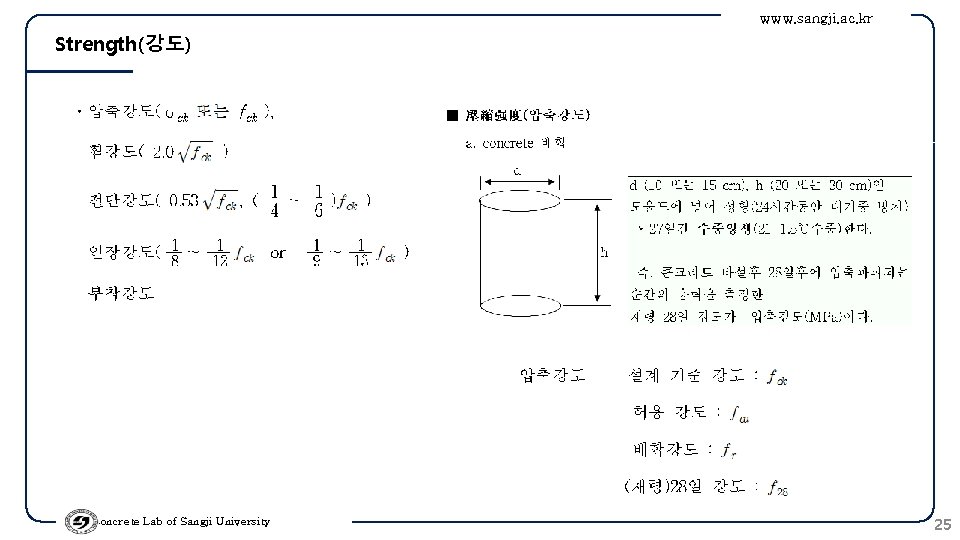 www.sangji.ac.kr
Strength(강도)
· 압축강도( σck 또는 fck ),
휨강도( 2.0 √fck )
전단강도( 0.53 √fck, ( 1/4 ~ 1/6 )fck )
인장강도( 1/8 ~ 1/12 fck or 1/9 ~ 1/13 fck )
부착강도
■ 壓縮强度(압축강도)
a. concrete
d
h
d (10 또는 15 cm), h (20 또는 30 cm)인
넣어 성형(24시간동안 대기중 방치)
· 27일간 수중양생(21 1.5℃수중)한다.
즉, 콘크리트 타설후 28일후에 압축파괴되는
순간의 측정한
재령 28일 압축강도(MPa)이다.
압축강도
설계 기준 강도 : fck
허용 강도 : fca
배합강도 : fr
(재령)28일 강도 : f28
oncrete Lab of Sangji University
25